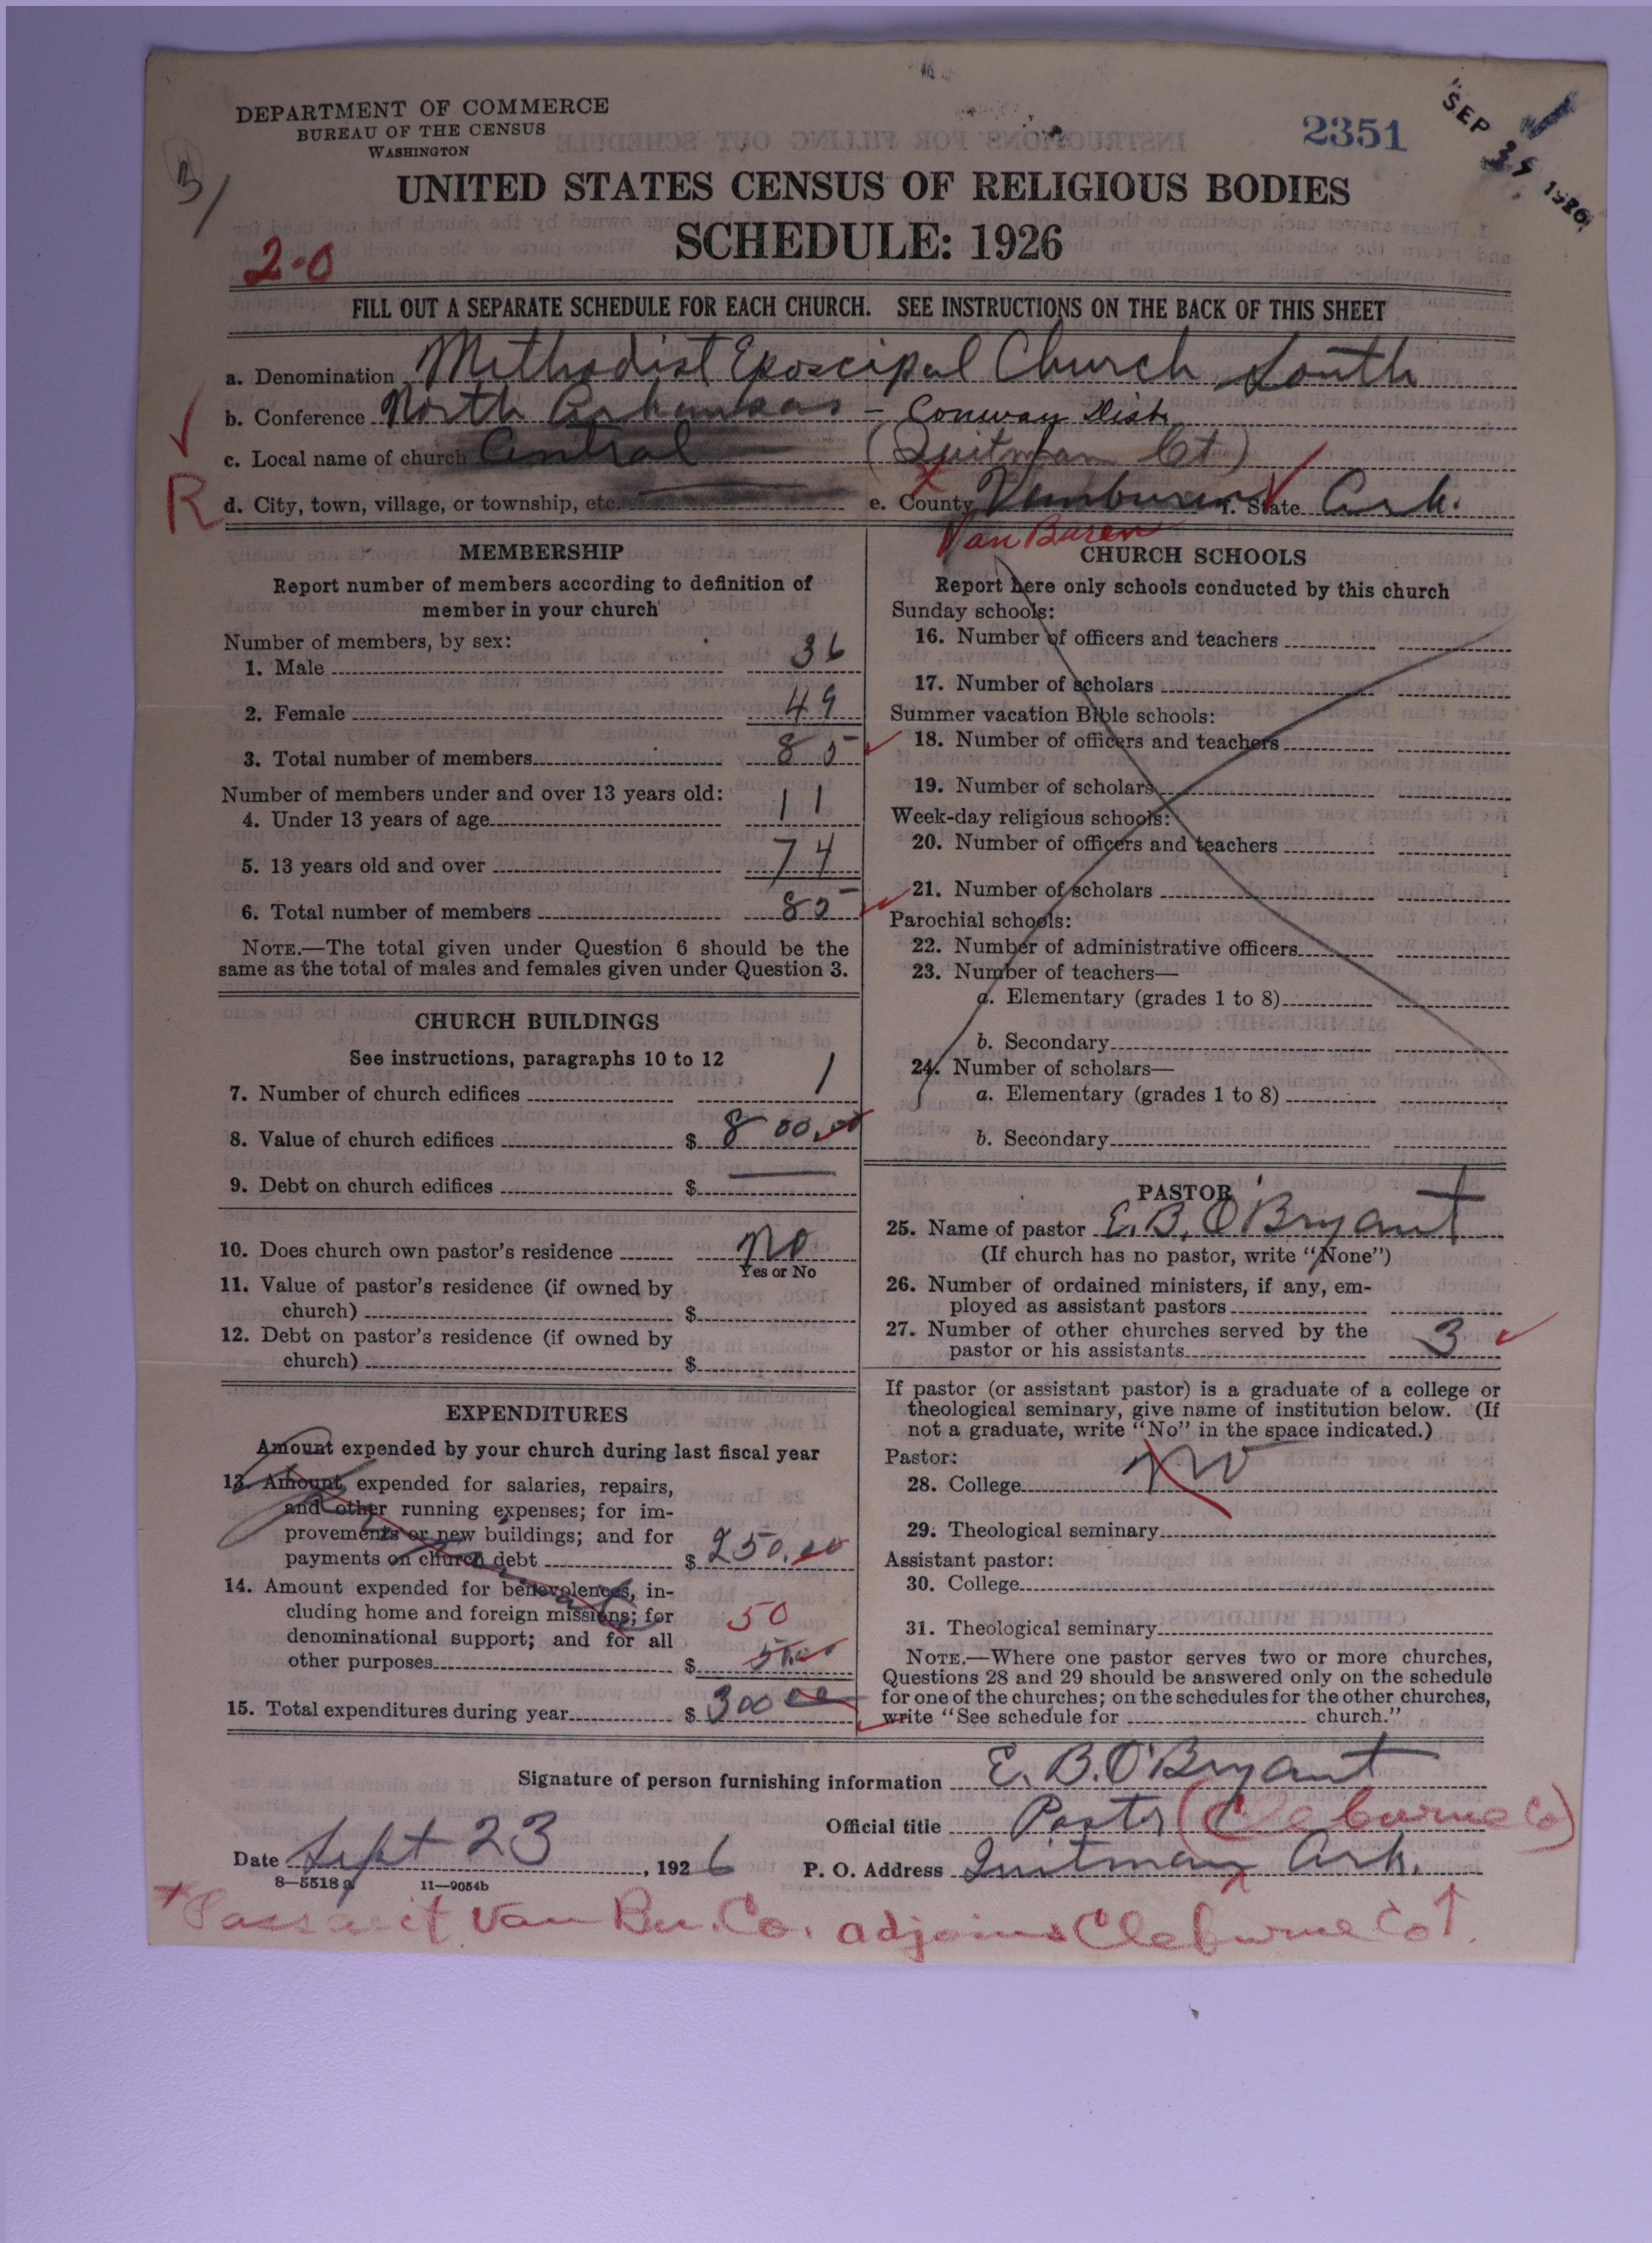 DEPARTMENT OF COMMERCE
BUREAU OF THE CENSUS
WASHINGTON
2351
SEP 1926
UNITED STATES CENSUS OF RELIGIOUS BODIES
SCHEDULE: 1926
2-0
FILL OUT A SEPARATE SCHEDULE FOR EACH CHURCH. SEE INSTRUCTIONS ON THE BACK OF THIS SHEET
a. Denomination Methodist Episcipal Church South
b. Conference North Arkansas - Conway Dist.
c. Local name of church Central (Quitman Ct)
R
d. City, town, village, or township, etc. e. County Vanburen f. State Ark.
Van Buren
MEMBERSHIP
Report number of members according to definition of
member in your church
Number of members, by sex:
1. Male 36
2. Female 49
3. Total number of members 85
Number of members under and over 13 years old:
4. Under 13 years of age 11
5. 13 years old and over 74
6. Total number of members 85
NOTE.—The total given under Question 6 should be the
same as the total of males and females given under Question 3.
CHURCH BUILDINGS
See instructions, paragraphs 10 to 12
7. Number of church edifices 1
8. Value of church edifices $ 800.00
9. Debt on church edifices $
10. Does church own pastor's residence No
Yes or No
11. Value of pastor's residence (if owned by
church) $
12. Debt on pastor's residence (if owned by
church) $
EXPENDITURES
Amount expended by your church during last fiscal year
13. Amount expended for salaries, repairs,
and other running expenses; for im-
provements or new buildings; and for
payments on church debt $ 250.00
14. Amount expended for benevolences, in-
cluding home and foreign missions; for
denominational support; and for all
other purposes $ 50
15. Total expenditures during year $ 300 00
CHURCH SCHOOLS
Report here only schools conducted by this church
Sunday schools:
16. Number of officers and teachers
17. Number of scholars
Summer vacation Bible schools:
18. Number of officers and teachers
19. Number of scholars
Week-day religious schools:
20. Number of officers and teachers
21. Number of scholars
Parochial schools:
22. Number of administrative officers
23. Number of teachers—
a. Elementary (grades 1 to 8)
b. Secondary
24. Number of scholars—
a. Elementary (grades 1 to 8)
b. Secondary
PASTOR
25. Name of pastor E. B. O'Bryant
(If church has no pastor, write "None")
26. Number of ordained ministers, if any, em-
ployed as assistant pastors
27. Number of other churches served by the
pastor or his assistants 3
If pastor (or assistant pastor) is a graduate of a college or
theological seminary, give name of institution below. (If
not a graduate, write "No" in the space indicated.)
Pastor:
28. College No
29. Theological seminary
Assistant pastor:
30. College
31. Theological seminary
NOTE.—Where one pastor serves two or more churches,
Questions 28 and 29 should be answered only on the schedule
for one of the churches; on the schedules for the other churches,
write "See schedule for church."
Signature of person furnishing information E. B. O'Bryant
Official title Pastor (Cleburne Co)
Date Sept 23, 1926 P. O. Address Quitman Ark.
8—5518 a 11—9054b
Van Bu. Co. adjoins Cleburne Co